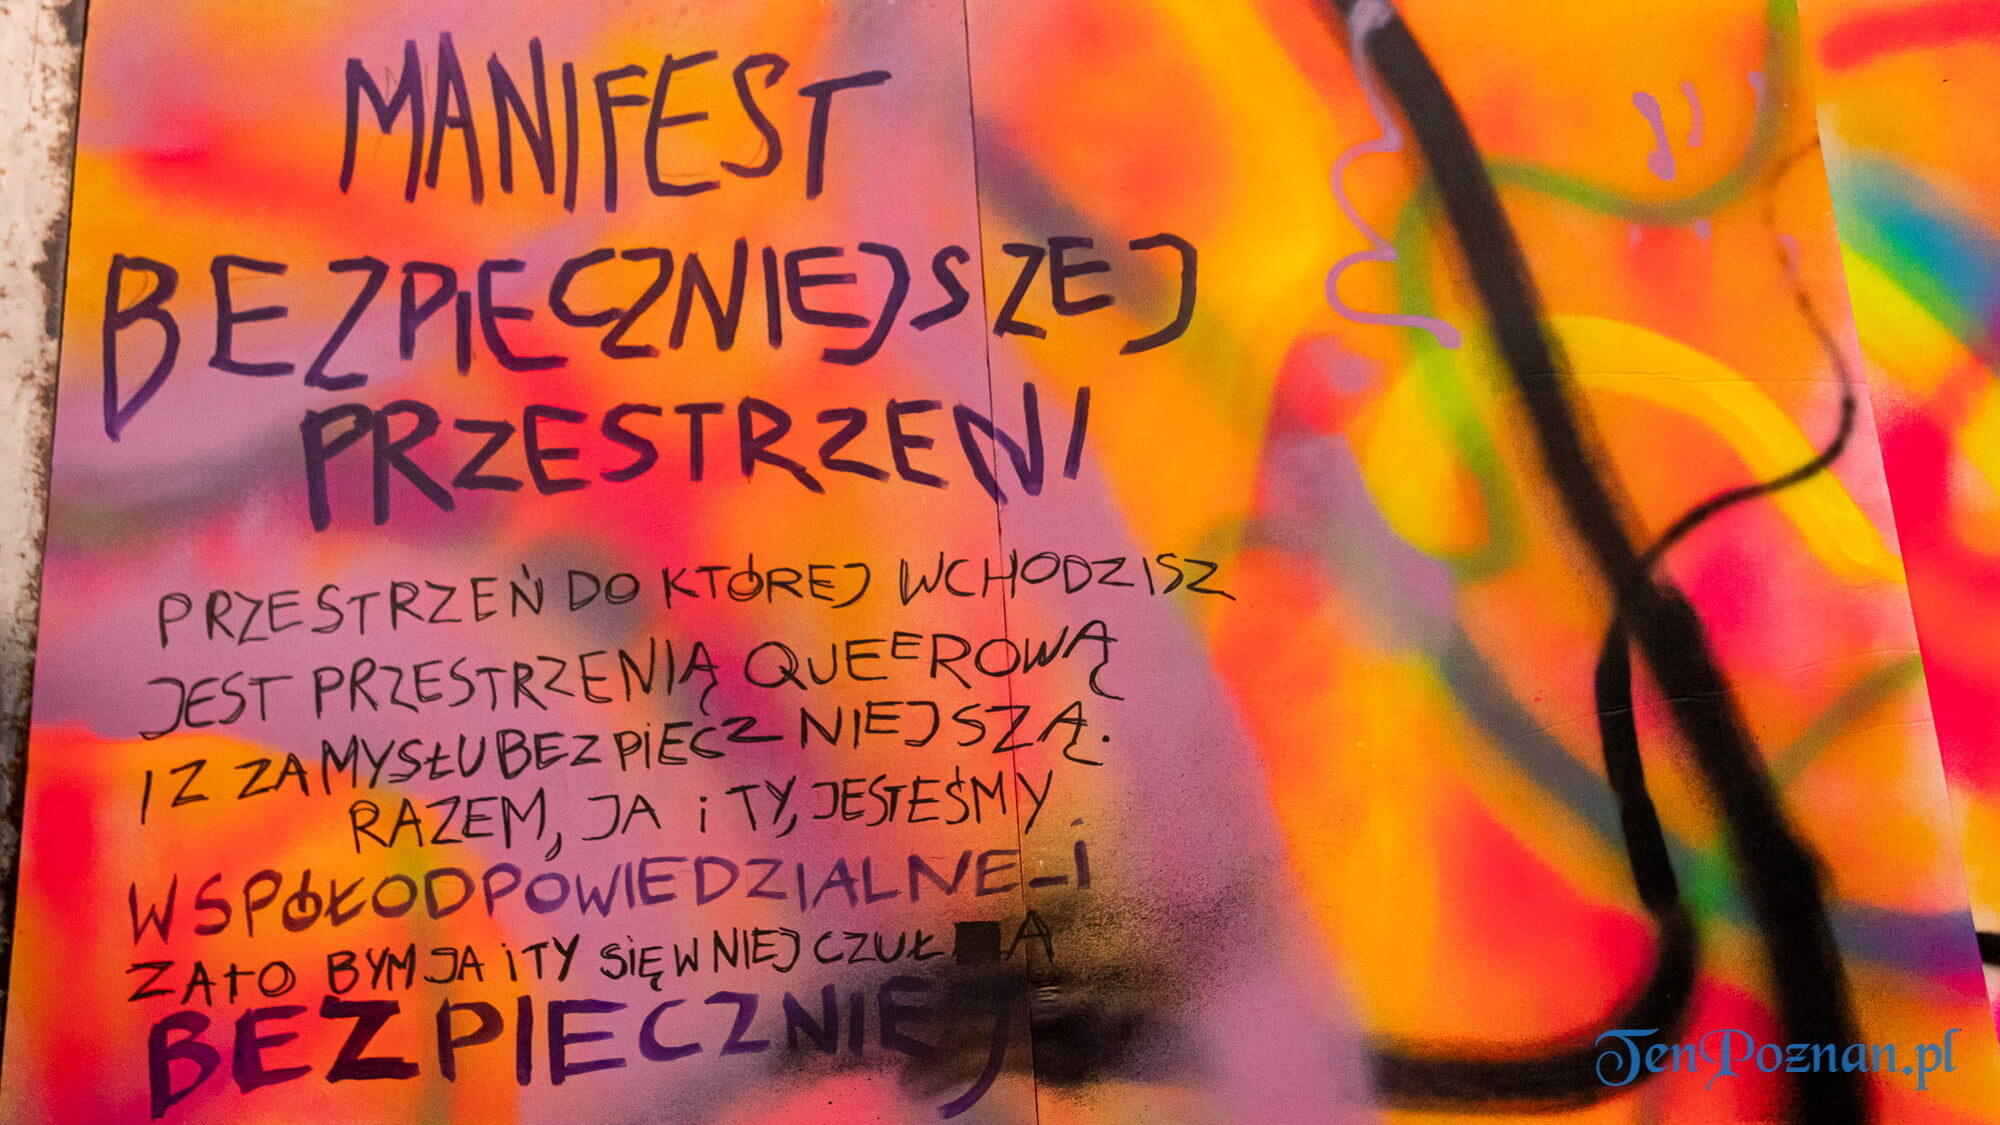 MANIFEST
BEZPIECZNIEJSZEJ
PRZESTRZENI
PRZESTRZEŃ DO KTÓREJ WCHODZISZ
JEST PRZESTRZENIĄ QUEEROWĄ
I Z ZAMYSŁU BEZPIECZNIEJSZĄ.
RAZEM, JA i TY, JESTEŚMY
WSPÓŁODPOWIEDZIALNE_I
ZA TO BYM JA i TY SIĘ W NIEJ CZUŁ A
BEZPIECZNIEJ
TenPoznan.pl